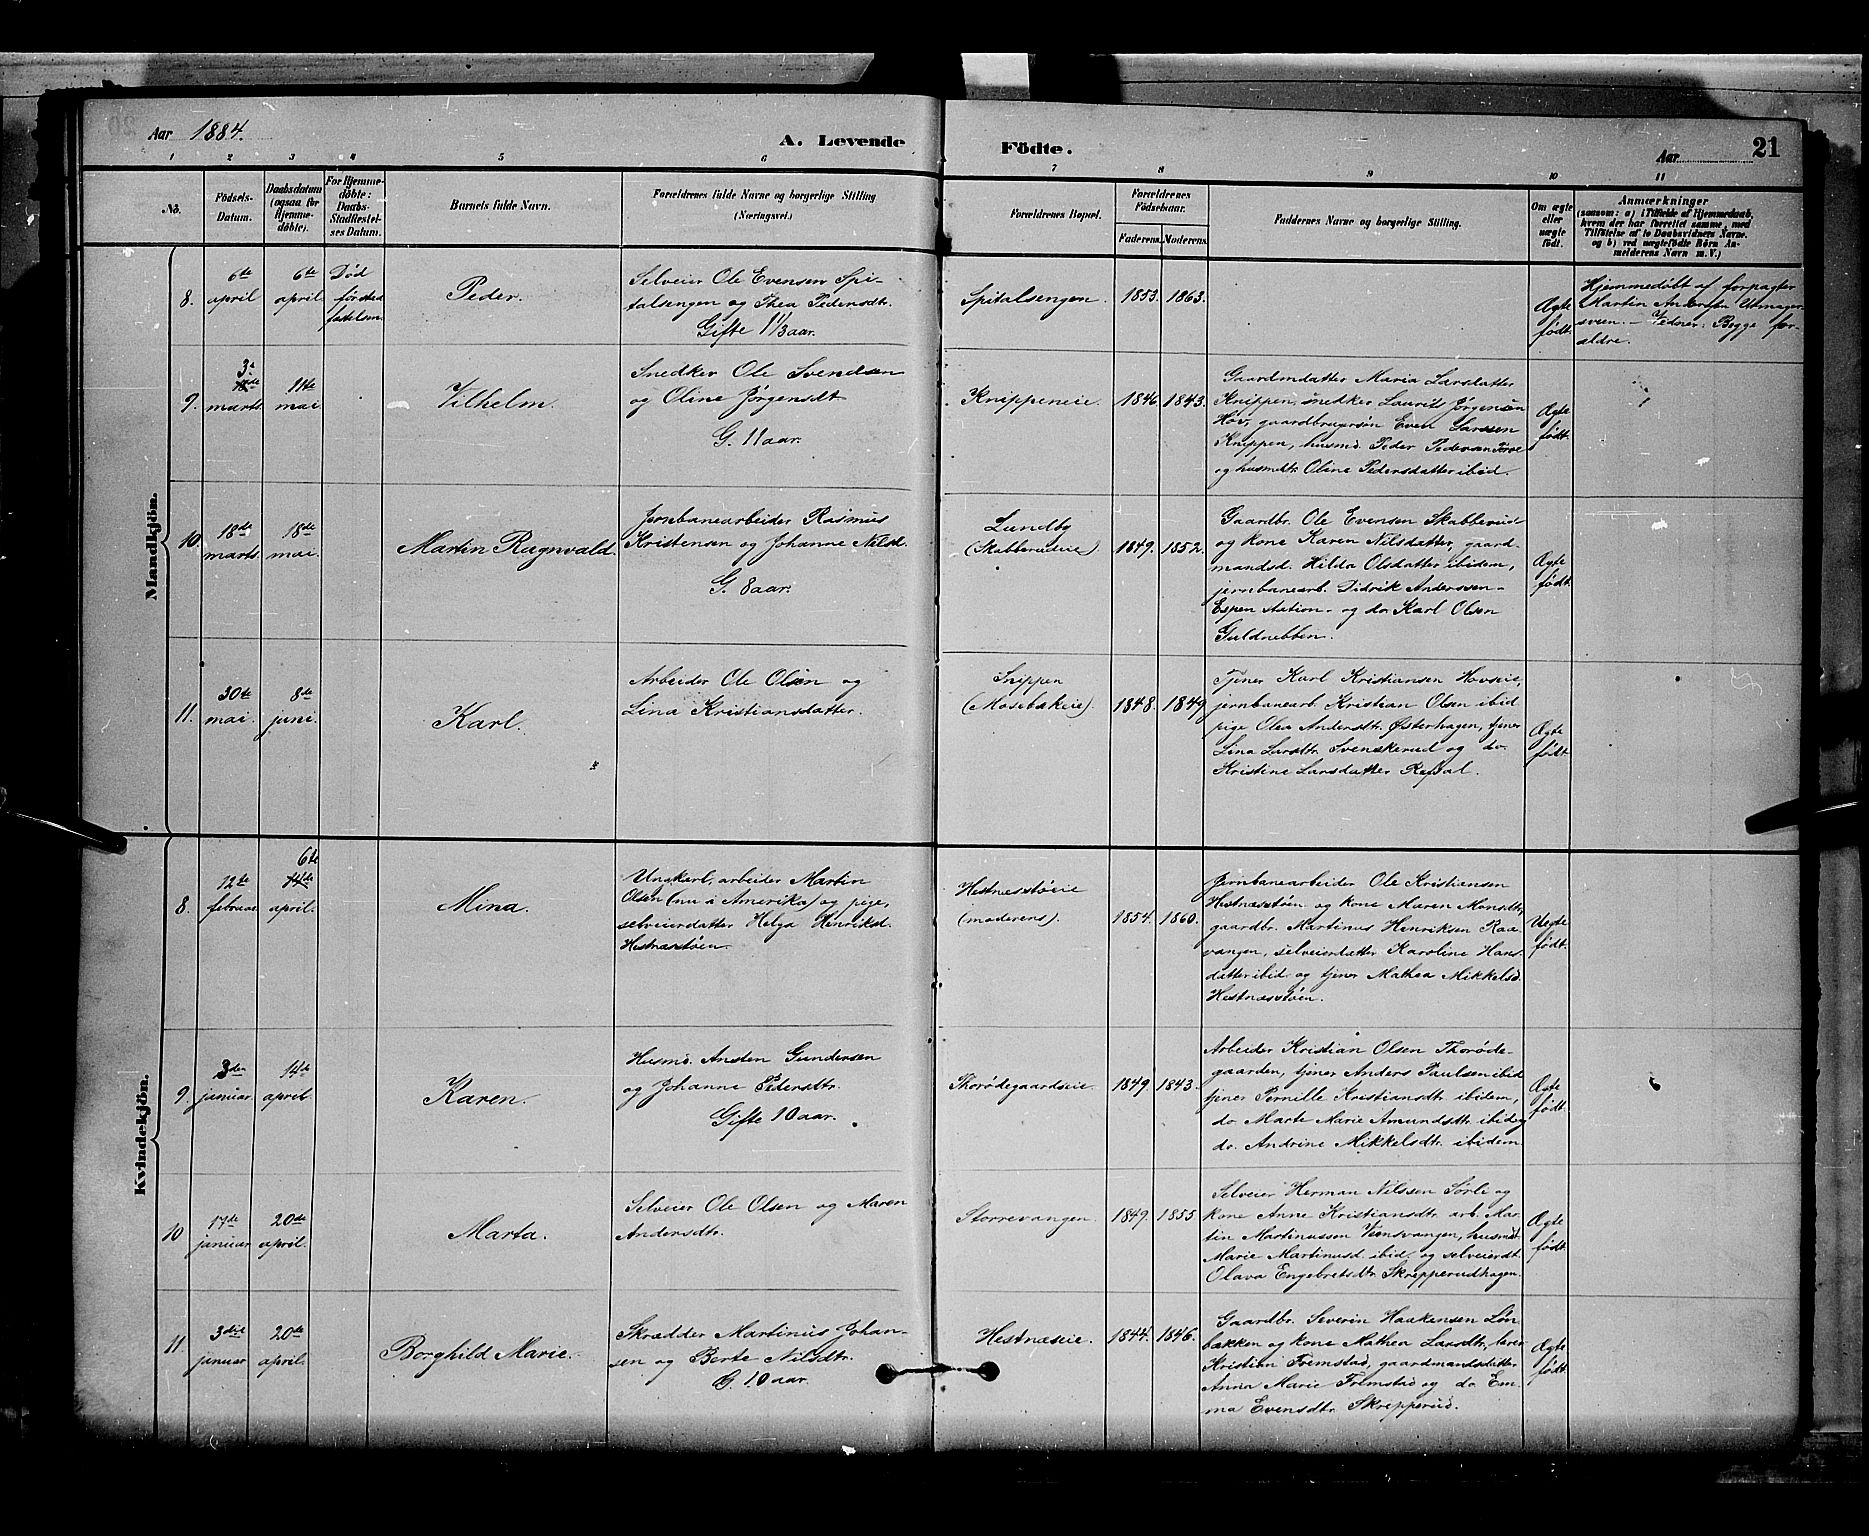 Aar 1884.
A. Levende
Födte.
Aar
21
1 2 3 4 5 6 7 8 9 10 11
No.
Födsels-
Datum.
Daabsdatum
(ogsaa for
Hjemme-
döbte).
For Hjemme-
döbte:
Daabs-
Stadfæstel-
ses Datum.
Barnets fulde Navn.
Forældrenes fulde Navne og borgerlige Stilling
(Næringsvei.)
Forældrenes Bopæl.
Forældrenes
Födselsaar.
Faderens. Moderens.
Faddernes Navne og borgerlige Stilling.
Om ægte
eller
uægte
födt.
Anmærkninger
(saasom: a) i Tilfælde af Hjemmedaab,
hvem der har forrettet samme, med
Tilföielse af to Daabsvidners Navne,
og b) ved uægtefödte Börn An-
melderens Navn m. V.)
Mandkjön.
8.
6te
april
6te
april
Død
før stad-
fæstelsen
Peder.
Selveier Ole Evensen Spi-
talsengen og Thea Pedersdt.
Gifte 1 1/3 aar.
Spitalsengen.
1853. 1863.
Ægte
født.
Hjemmedøbt af forpagter
Martin Andersen
sveen. – Vidner: Begge for-
ældre.
9.
3de
marts
11te
mai
Vilhelm.
Snedker Ole Svendsen
og Oline Jørgensdt
G. 11 aar.
Knippeneie.
1846. 1843.
Gaardmdatter Maria Larsdatter
Knippen, snedker Laurits Jørgensen
Hov, gaardbrugersøn Even Larssen
Knippen, husmd. Peder Pedersen
og husmdtr. Oline Pedersdatter ibid.
Ægte
født.
10.
18de
marts
18de
mai
Martin Ragnvald.
Jernbanearbeider Rasmus
Kristensen og Johanne Nilsd.
G. 8 aar.
Lundby
(Skabberudeie)
1849. 1852.
Gaardbr. Ole Evensen Skabberud
og kone Karen Nilsdatter, gaard-
mandsd. Hilda Olsdatter ibidem,
jernbanearb. Didrik Anderssen
Espen station – og do Karl Olsen
Guldnebben.
Ægte
født.
11.
30te
mai.
8de
juni.
Karl.
Arbeider Ole Olsen og
Lina Kristiansdatter.
Snippen
(Mosebækeie).
1848. 1849
Tjener Karl Kristiansen Hovseie,
jernbanearb. Kristian Olsen ibid
pige Olea Andersdtr. Østerhagen, tjener
Lina Larsdtr. Svenskerud og do.
Kristine Larsdatter Refsal.
Ægte
født.
Kvindekjön.
8.
12te
februar
6te
14de
april.
Mina.
Ungkarl, arbeider Martin
Olsen (nu i Amerika) og pige,
selveierdatter Helga Henriksd.
Hestnæsstøen.
Hestnæsstøeie
(moderens).
1854. 1860.
Jernbanearbeider Ole Kristiansen
Hestnæsstøen og kone Maren Monsdtr,
gaardbr. Martinus Henriksen Raa-
vangen, selveierdatter Karoline Hans-
datter ibid og tjener Mathea Mikkelsd.
Hestnæsstøen.
Uegte
født.
9.
3den
januar.
14de
april.
Karen.
Husmd. Ansten Gundersen
og Johanne Pedersdtr.
Gifte 10 aar.
Thorødegaardseie.
1849 1843.
Arbeider Kristian Olsen Thorøde-
gaarden, tjener Anders Paulsen ibid
tjener Pernille Kristiansdtr. ibidem,
do Marte Marie Amundsdtr. ibid og
do. Andrine Mikkelsdtr. ibidem
Ægte
født.
10
17de
januar
20de
april.
Marta.
Selveier Ole Olsen og Maren
Andersdtr.
Storrevangen.
1849. 1855
Selveier Herman Nilssen Sorle og
kone Anne Kristiansdtr. arb. Mar-
tin Martinussen Viensvangen, husmdt
Marie Martinusd. ibid, og selveierdt.
Olava Engebretsdtr. Skrepperudhagen.
Ægte
født.
11.
3die
januar
20de
april.
Borghild Marie.
Skrædder Martinus Johan-
sen og Berte Nilsdtr.
G. 10 aar.
Hestnæseie.
1844. 1846.
Gaardbr. Severin Haakensen Løn-
bækken og kone Mathea Larsdtr, lærer
Kristian Fremstad, gaardmandsdatter
Anna Marie Fremstad og do Em-
ma Evensdtr. Skrepperud.
Ægte
født.